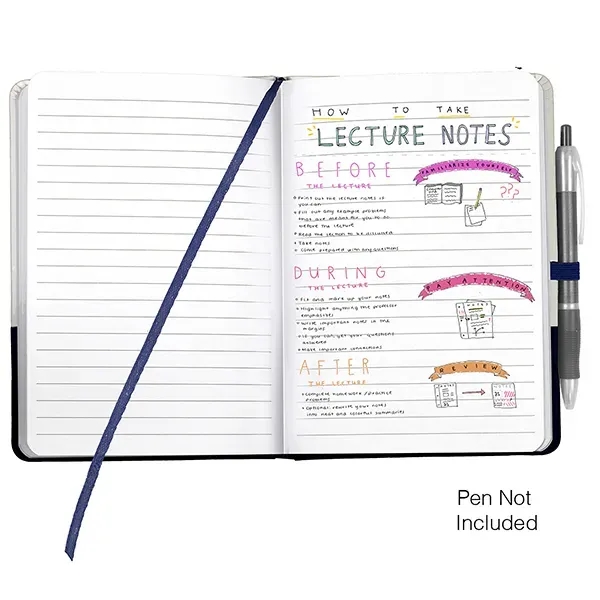 HOW TO TAKE
LECTURE NOTES
BEFORE
THE LECTURE
FAMILIARIZE YOURSELF
• Print out the lecture notes if
you can
???
• Fill out any example problems
that are meant for you to do
before the lecture
• Read the section to be discussed
• Take notes
• come prepared with any questions
DURING
THE LECTURE
PAY ATTENTION
• Fix and mark up your notes
• Highlight anything the professor
emphasizes
• Write important notes in the
margins
• If you can, get your questions
answered
• Make important connections
AFTER
THE LECTURE
REVIEW
• Complete homework/practice
problems
• Optional: rewrite your notes
into neat and colorful summaries
Pen Not
Included